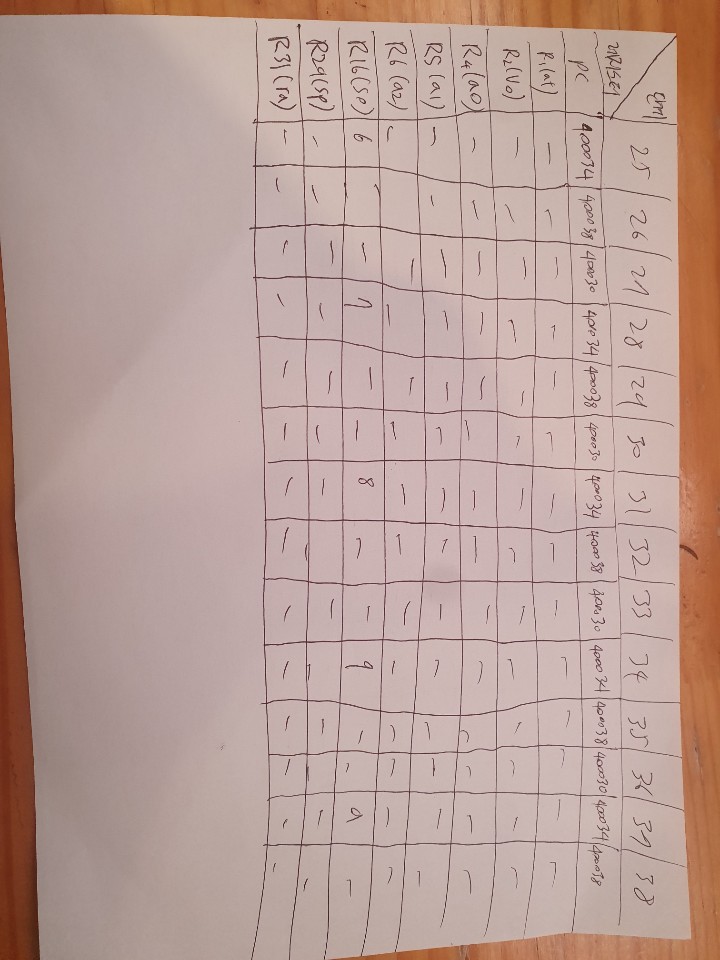 25 26 27 28 29 30 31 32 33 34 35 36 37 38
PC 400034 400038 400030 400034 400038 400030 400034 400038 400030 400034 400038 400030 400034 400038
R1(at) - - - - - - - - - - - - - -
R2(v0) - - - - - - - - - - - - - -
R4(a0) - - - - - - - - - - - - - -
R5(a1) - - - - - - - - - - - - - -
R6(a2) - - - - - - - - - - - - -
R16(s0) 6 - - 7 - - 8 - - 9 - - a -
R29(sp) - - - - - - - - - - - - -
R31(ra) - - - - - - - - - - - - - -